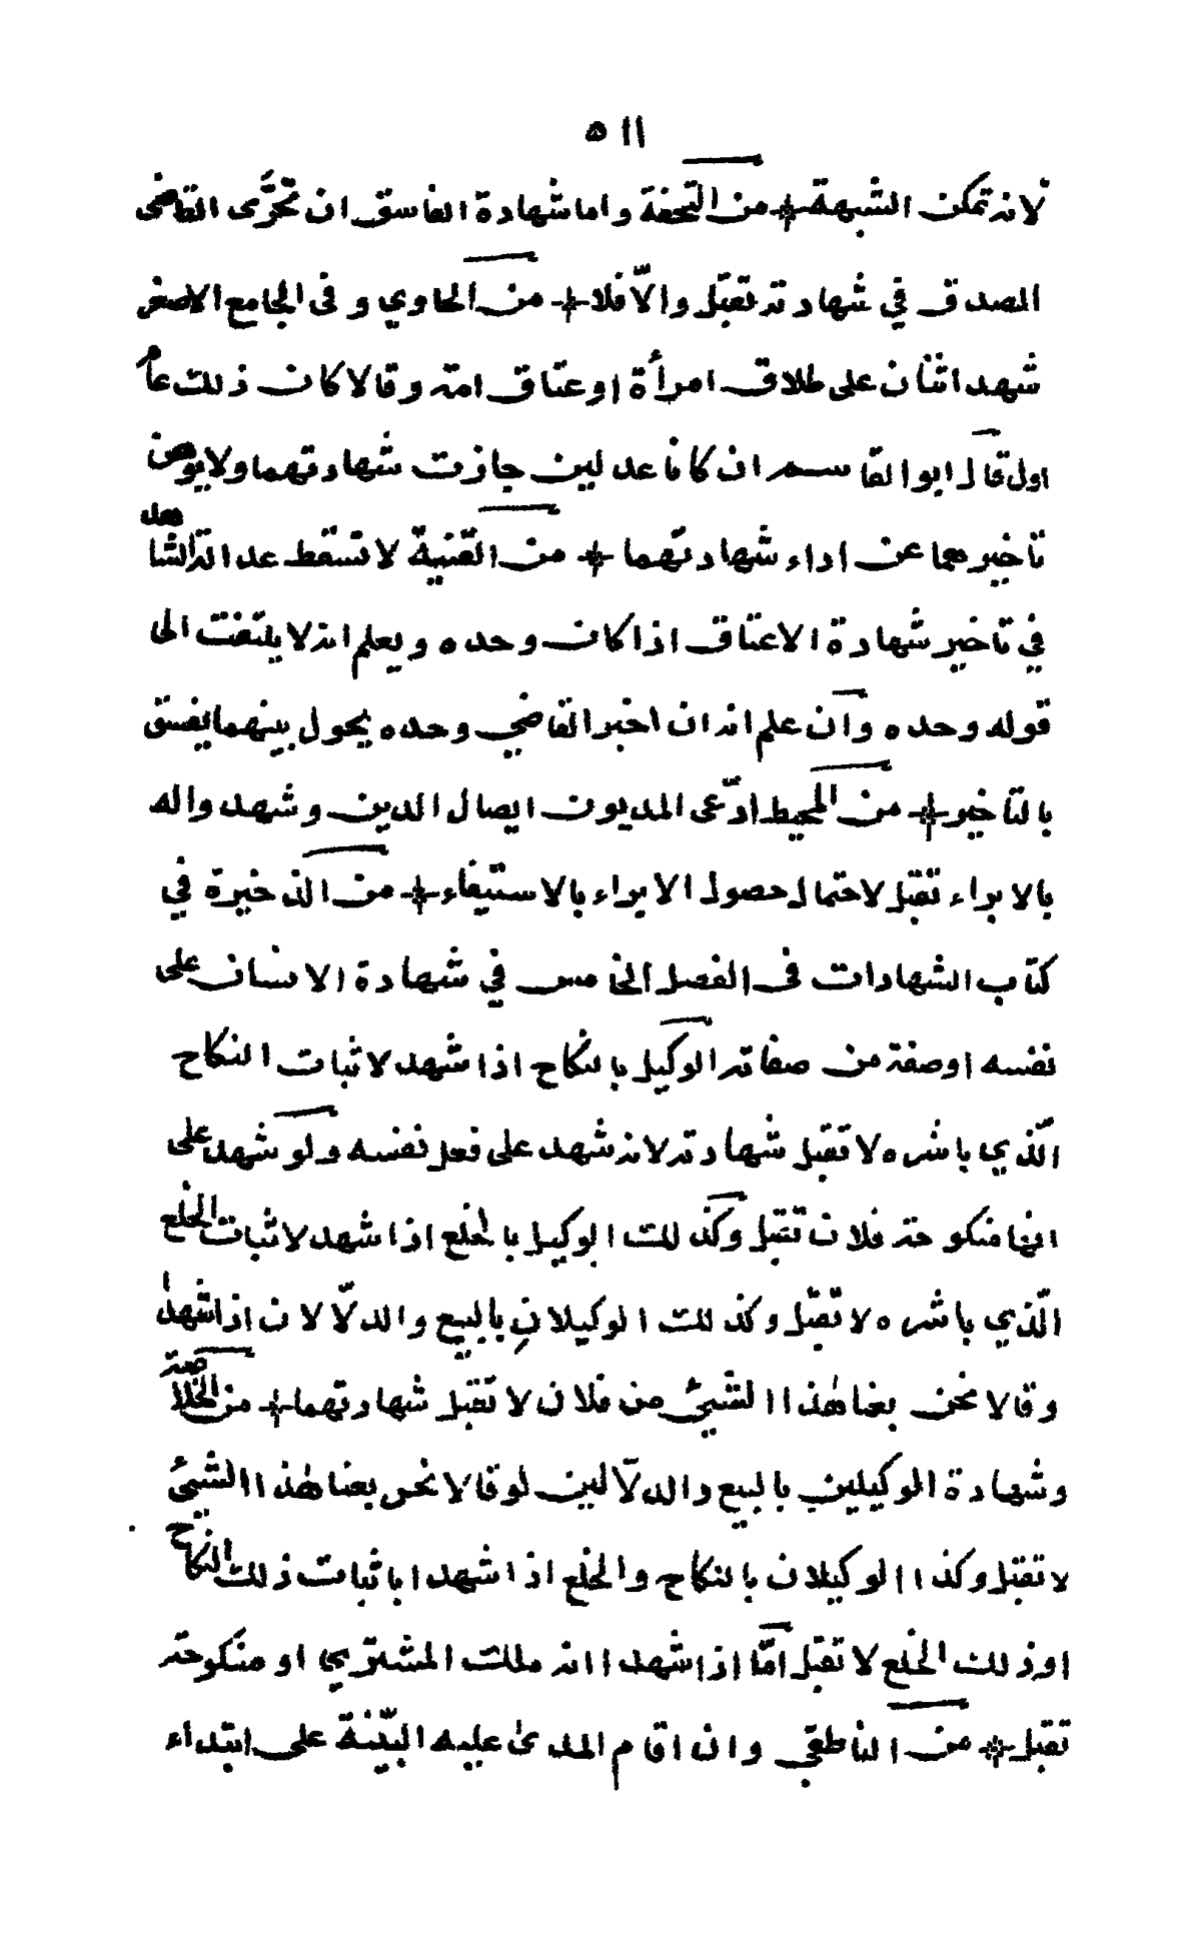 ٥١١
لانه تمكن الشبهة من التحفة واما شهادة الفاسق ان تحرّى القاضى
الصدق في شهادته تقبل والّا فلا من الحاوي وفى الجامع الاصغر
شهد اثنان على طلاق امرأة او عتاق امته وقالا كان ذلك عام
اول قال ابو القاسم ان كانا عدلين جازت شهادتهما ولا يوهن
تأخيرهما عن اداء شهادتهما من القنية لا تسقط عدالة الشاهد
في تأخير شهادة الاعتاق اذا كان وحده ويعلم انه لا يلتفت الى
قوله وحده وان علم انه ان اخبر القاضي وحده يحول بينهما يفسق
بالتأخير من المحيط ادّعى المديون ايصال الدين وشهدوا له
بالابراء تقبل لاحتمال حصول الابراء بالاستيفاء من الذخيرة في
كتاب الشهادات فى الفصل الخامس في شهادة الانسان على
نفسه اوصفة من صفاته الوكيل بالنكاح اذا شهد لاثبات النكاح
الّذي باشره لا تقبل شهادته لانه شهد على فعل نفسه ولو شهد على
انها منكوحة فلان تقبل وكذلك الوكيل بالخلع اذا شهد لاثبات الخلع
الّذي باشره لا تقبل وكذلك الوكيلان بالبيع والدلّالان اذا شهدا
وقالا نحن بعنا هذا الشيئ من فلان لا تقبل شهادتهما من الخلاصة
وشهادة الوكيلين بالبيع والدلّالين لو قالا نحن بعنا هذا الشيئ
لا تقبل وكذا الوكيلان بالنكاح والخلع اذا شهدا باثبات ذلك النكاح
اوذلك الخلع لا تقبل امّا اذا شهدا انه ملك المشتري او منكوحته
تقبل من الناطفي وان اقام المدعى عليه البيّنة على ابتداء